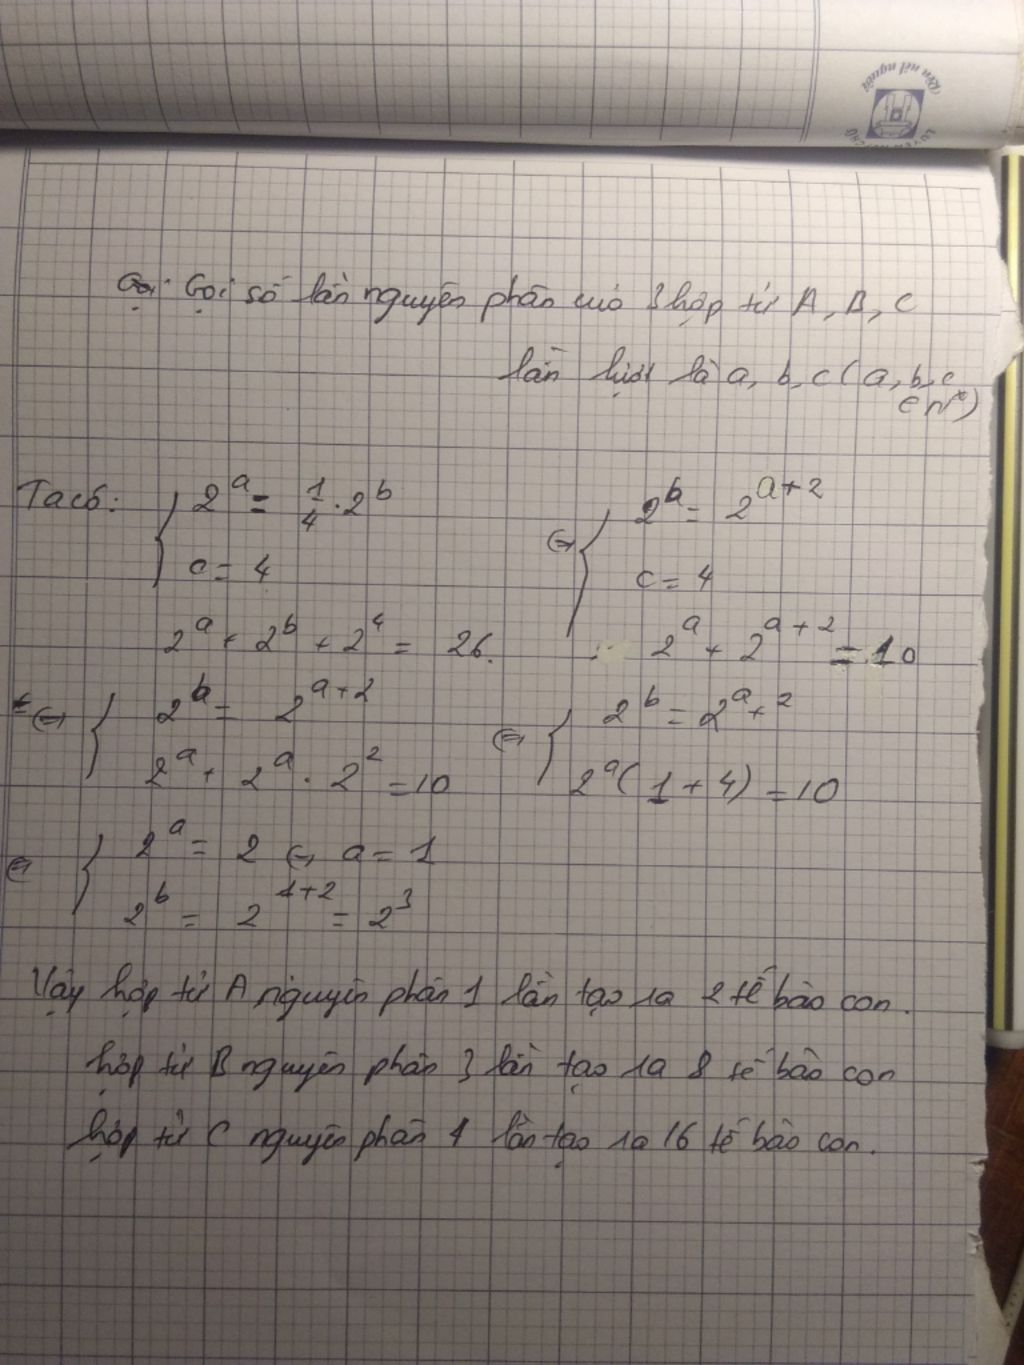 Gọi số lần nguyên phân của 3 hợp tử A, B, C
lần lượt là a, b, c ( a, b, c
∈ N*)
Ta có: { 2^a = 1/4 . 2^b
c = 4
2^a + 2^b + 2^4 = 26.
⇔ { 2^b = 2^{a+2}
c = 4
2^a + 2^{a+2} = 10
⇔ { 2^b = 2^{a+2}
2^a + 2^a . 2^2 = 10
⇔ { 2^b = 2^{a+2}
2^a ( 1 + 4) = 10
⇔ { 2^a = 2 ⇔ a = 1
2^b = 2^{1+2} = 2^3
Vậy hợp tử A nguyên phân 1 lần tạo ra 2 tế bào con.
hợp tử B nguyên phân 3 lần tạo ra 8 tế bào con
hợp tử C nguyên phân 4 lần tạo ra 16 tế bào con.